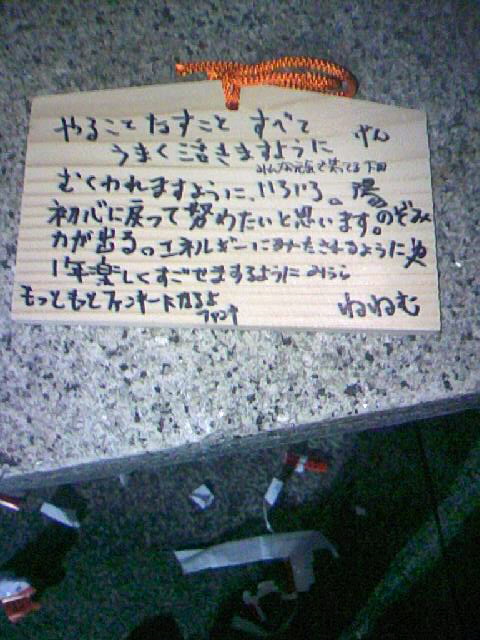 やること なすこと すべて やん
うまく 活きますように
みんな元気で笑ってる 下田
むくわれますように、いろいろ。陽
初心に戻って努めたいと思います。のぞみ
力が出る。エネルギーにみたされるように
1年楽しくすごせますように みうら
もっともっとファンキーになるよ
ファンキ
ねねむ